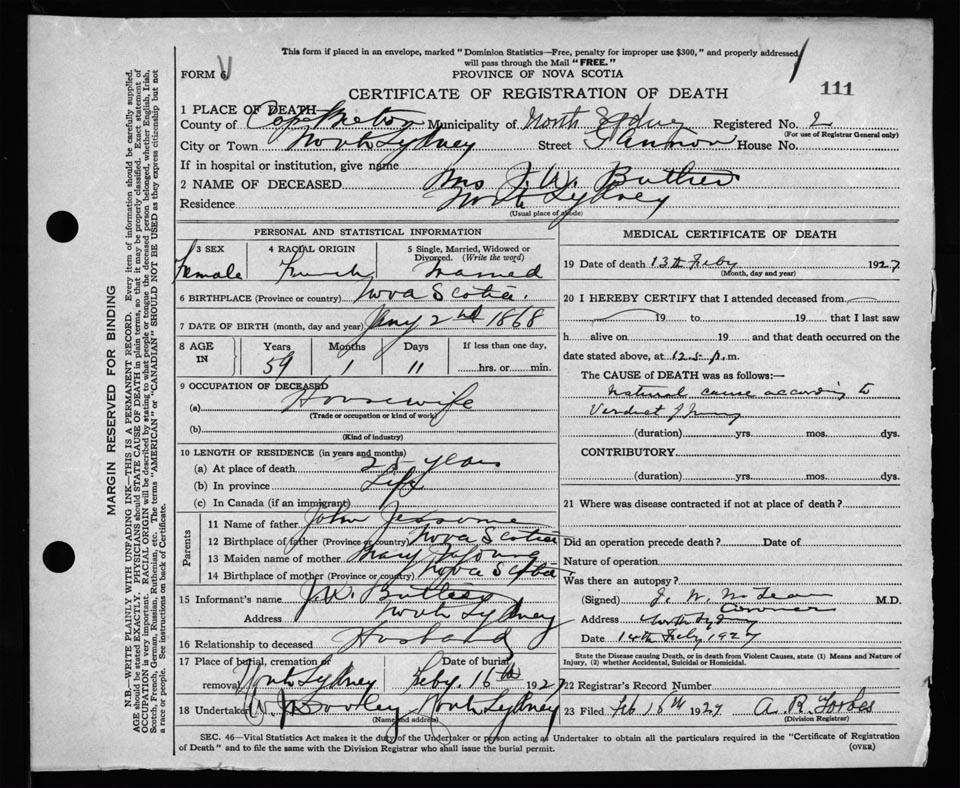 This form if placed in an envelope, marked "Dominion Statistics—Free, penalty for improper use $300," and properly addressed,
will pass through the Mail "FREE."
FORM 6
PROVINCE OF NOVA SCOTIA
CERTIFICATE OF REGISTRATION OF DEATH
111
1 PLACE OF DEATH
County of Cape Breton Municipality of North Sydney Registered No. 2
(For use of Registrar General only)
City or Town North Sydney Street House No.
If in hospital or institution, give name
2 NAME OF DECEASED Mrs J. W. Butler
Residence North Sydney
(Usual place of abode)
PERSONAL AND STATISTICAL INFORMATION
3 SEX 4 RACIAL ORIGIN 5 Single, Married, Widowed or Divorced. (Write the word)
Female French Married
6 BIRTHPLACE (Province or country) Nova Scotia.
7 DATE OF BIRTH (month, day and year) Jany 2nd 1868
8 AGE IN Years Months Days If less than one day,
59 1 11 hrs. or min.
9 OCCUPATION OF DECEASED
(a) Housewife
(Trade or occupation or kind of work)
(b)
(Kind of industry)
10 LENGTH OF RESIDENCE (in years and months)
(a) At place of death 25 years
(b) In province Life
(c) In Canada (if an immigrant)
Parents
11 Name of father John Jessome
12 Birthplace of father (Province or country) Nova Scotia
13 Maiden name of mother Mary
14 Birthplace of mother (Province or country) Nova Scotia
15 Informant's name J. W. Butler
Address North Sydney
16 Relationship to deceased Husband
17 Place of burial, cremation or removal North Sydney Date of burial Feby. 16th 1927
18 Undertaker North Sydney
(Name and address)
MEDICAL CERTIFICATE OF DEATH
19 Date of death 13th Feby 1927
(Month, day and year)
20 I HEREBY CERTIFY that I attended deceased from
19 to 19 that I last saw
h alive on 19 and that death occurred on the
date stated above, at 12.5 p.m.
The CAUSE of DEATH was as follows:—
Natural cause according to
Verdict of Jury
(duration) yrs. mos. dys.
CONTRIBUTORY
(duration) yrs. mos. dys.
21 Where was disease contracted if not at place of death?
Did an operation precede death? Date of
Nature of operation
Was there an autopsy?
(Signed) J. W. McLean M.D.
Coroner
Address North Sydney
Date 14th Feby 1927
State the Disease causing Death, or in death from Violent Causes, state (1) Means and Nature of
Injury, (2) whether Accidental, Suicidal or Homicidal.
22 Registrar's Record Number
23 Filed Feb 16th 1927 A. R. Forbes
(Division Registrar)
SEC. 46—Vital Statistics Act makes it the duty of the Undertaker or person acting as Undertaker to obtain all the particulars required in the "Certificate of Registration
of Death" and to file the same with the Division Registrar who shall issue the burial permit.
(OVER)
MARGIN RESERVED FOR BINDING
N.B.—WRITE PLAINLY WITH UNFADING INK—THIS IS A PERMANENT RECORD. Every item of information should be carefully supplied.
AGE should be stated EXACTLY. PHYSICIANS should STATE CAUSE OF DEATH in plain terms, so that it may be properly classified. Exact statement of
OCCUPATION is very important. RACIAL ORIGIN will be described by stating to what people or tongue the deceased person belonged, whether English, Irish,
Scotch, French, German, Russian, Ruthenian, etc. The terms "AMERICAN" or "CANADIAN" SHOULD NOT BE USED as they express citizenship but not
a race or people. See instructions on back of Certificate.